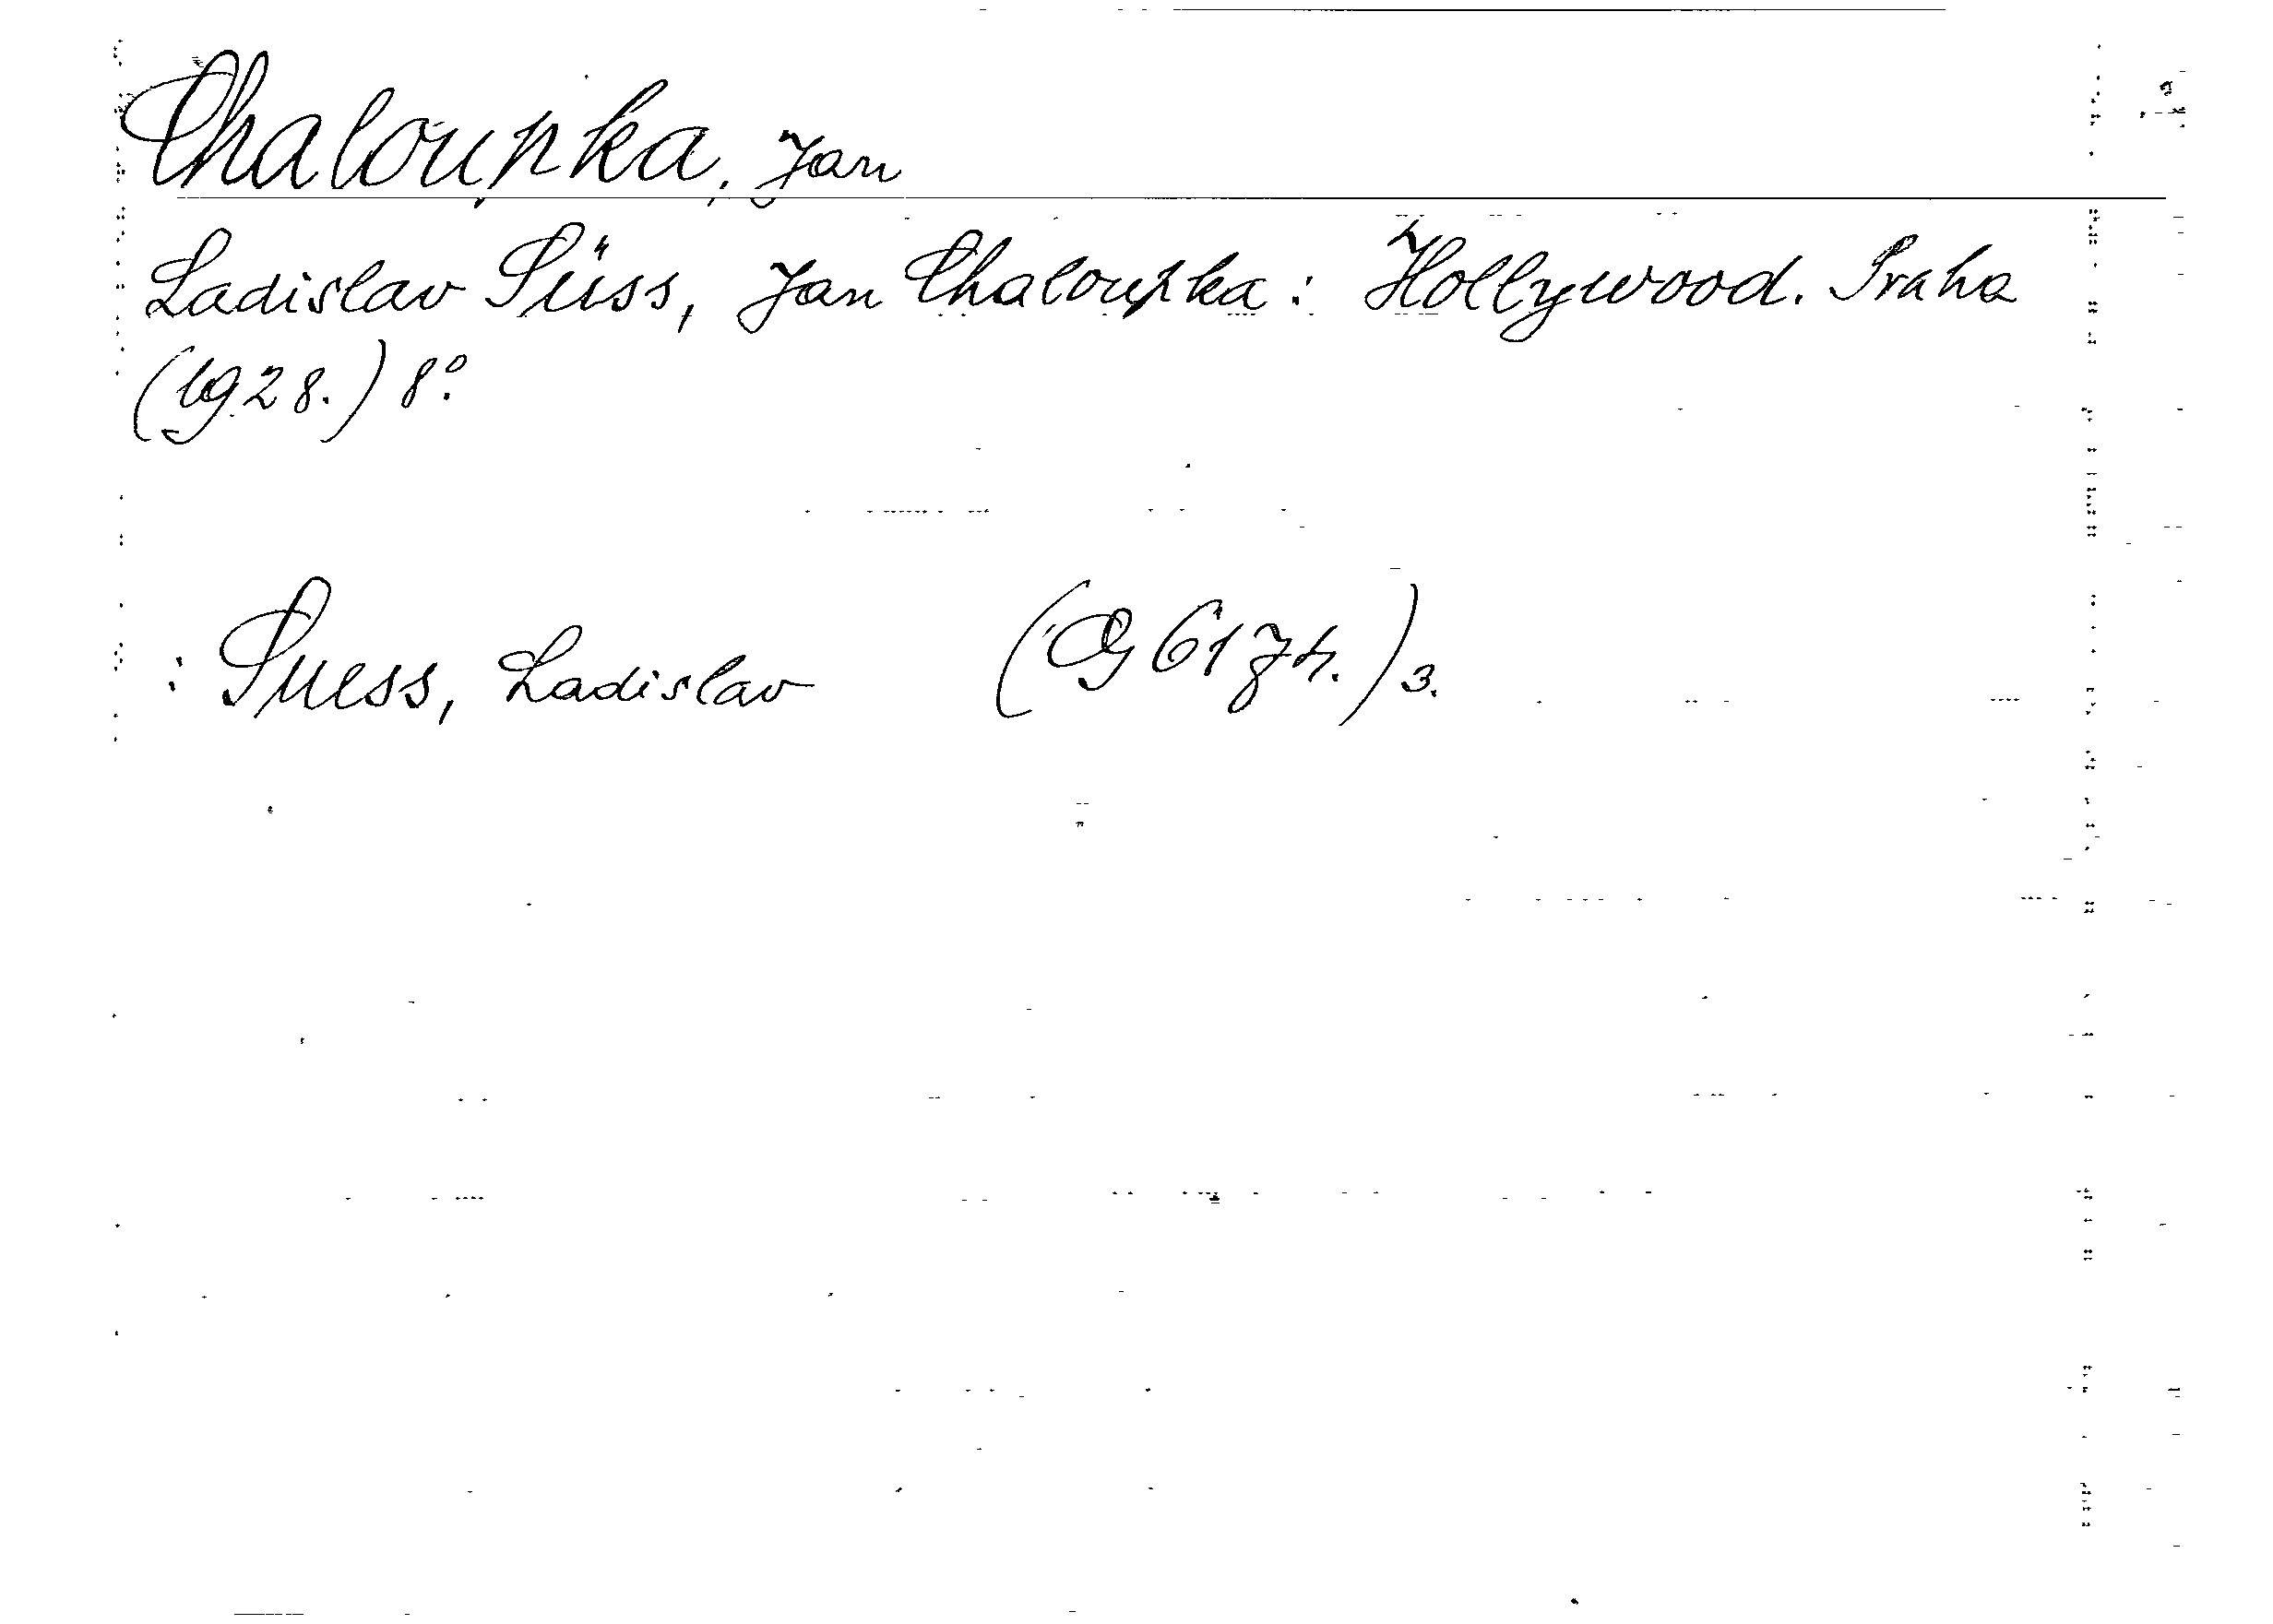 Chaloupka, Jan
Ladislav Süss, Jan Chaloupka: Hollywood. Praha
(1928.) 8°.
: Suess, Ladislav (Og 6174.)3.